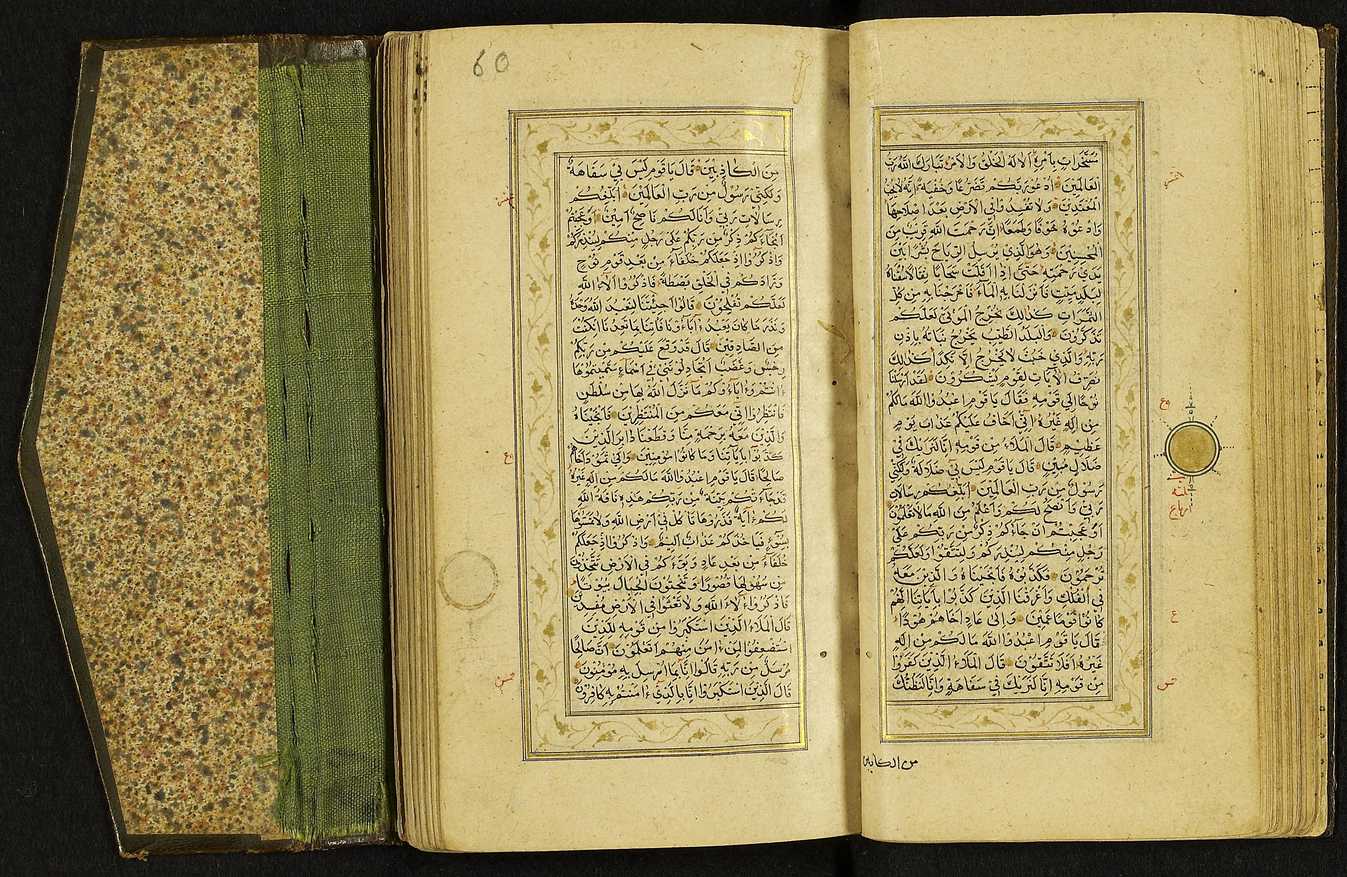 مُسَخَّرَاتٍ بِأَمْرِهِ أَلَا لَهُ الْخَلْقُ وَالْأَمْرُ تَبَارَكَ اللَّهُ رَبُّ
الْعَالَمِينَ ادْعُوا رَبَّكُمْ تَضَرُّعًا وَخُفْيَةً إِنَّهُ لَا يُحِبُّ
الْمُعْتَدِينَ وَلَا تُفْسِدُوا فِي الْأَرْضِ بَعْدَ إِصْلَاحِهَا
وَادْعُوهُ خَوْفًا وَطَمَعًا إِنَّ رَحْمَتَ اللَّهِ قَرِيبٌ مِنَ
الْمُحْسِنِينَ وَهُوَ الَّذِي يُرْسِلُ الرِّيَاحَ بُشْرًا بَيْنَ
يَدَيْ رَحْمَتِهِ حَتَّى إِذَا أَقَلَّتْ سَحَابًا ثِقَالًا سُقْنَاهُ
لِبَلَدٍ مَيِّتٍ فَأَنْزَلْنَا بِهِ الْمَاءَ فَأَخْرَجْنَا بِهِ مِنْ كُلِّ
الثَّمَرَاتِ كَذَلِكَ نُخْرِجُ الْمَوْتَى لَعَلَّكُمْ
تَذَكَّرُونَ وَالْبَلَدُ الطَّيِّبُ يَخْرُجُ نَبَاتُهُ بِإِذْنِ
رَبِّهِ وَالَّذِي خَبُثَ لَا يَخْرُجُ إِلَّا نَكِدًا كَذَلِكَ
نُصَرِّفُ الْآيَاتِ لِقَوْمٍ يَشْكُرُونَ لَقَدْ أَرْسَلْنَا
نُوحًا إِلَى قَوْمِهِ فَقَالَ يَا قَوْمِ اعْبُدُوا اللَّهَ مَا لَكُمْ
مِنْ إِلَهٍ غَيْرُهُ إِنِّي أَخَافُ عَلَيْكُمْ عَذَابَ يَوْمٍ
عَظِيمٍ قَالَ الْمَلَأُ مِنْ قَوْمِهِ إِنَّا لَنَرَاكَ فِي
ضَلَالٍ مُبِينٍ قَالَ يَا قَوْمِ لَيْسَ بِي ضَلَالَةٌ وَلَكِنِّي
رَسُولٌ مِنْ رَبِّ الْعَالَمِينَ أُبَلِّغُكُمْ رِسَالَاتِ
رَبِّي وَأَنْصَحُ لَكُمْ وَأَعْلَمُ مِنَ اللَّهِ مَا لَا تَعْلَمُونَ
أَوَعَجِبْتُمْ أَنْ جَاءَكُمْ ذِكْرٌ مِنْ رَبِّكُمْ عَلَى
رَجُلٍ مِنْكُمْ لِيُنْذِرَكُمْ وَلِتَتَّقُوا وَلَعَلَّكُمْ
تُرْحَمُونَ فَكَذَّبُوهُ فَأَنْجَيْنَاهُ وَالَّذِينَ مَعَهُ
فِي الْفُلْكِ وَأَغْرَقْنَا الَّذِينَ كَذَّبُوا بِآيَاتِنَا إِنَّهُمْ
كَانُوا قَوْمًا عَمِينَ وَإِلَى عَادٍ أَخَاهُمْ هُودًا
قَالَ يَا قَوْمِ اعْبُدُوا اللَّهَ مَا لَكُمْ مِنْ إِلَهٍ
غَيْرُهُ أَفَلَا تَتَّقُونَ قَالَ الْمَلَأُ الَّذِينَ كَفَرُوا
مِنْ قَوْمِهِ إِنَّا لَنَرَاكَ فِي سَفَاهَةٍ وَإِنَّا لَنَظُنُّكَ
من الكاذبين
60
مِنَ الْكَاذِبِينَ قَالَ يَا قَوْمِ لَيْسَ بِي سَفَاهَةٌ
وَلَكِنِّي رَسُولٌ مِنْ رَبِّ الْعَالَمِينَ أُبَلِّغُكُمْ
رِسَالَاتِ رَبِّي وَأَنَا لَكُمْ نَاصِحٌ أَمِينٌ أَوَعَجِبْتُمْ
أَنْ جَاءَكُمْ ذِكْرٌ مِنْ رَبِّكُمْ عَلَى رَجُلٍ مِنْكُمْ لِيُنْذِرَكُمْ
وَاذْكُرُوا إِذْ جَعَلَكُمْ خُلَفَاءَ مِنْ بَعْدِ قَوْمِ نُوحٍ
وَزَادَكُمْ فِي الْخَلْقِ بَصْطَةً فَاذْكُرُوا آلَاءَ اللَّهِ
لَعَلَّكُمْ تُفْلِحُونَ قَالُوا أَجِئْتَنَا لِنَعْبُدَ اللَّهَ وَحْدَهُ
وَنَذَرَ مَا كَانَ يَعْبُدُ آبَاؤُنَا فَأْتِنَا بِمَا تَعِدُنَا إِنْ كُنْتَ
مِنَ الصَّادِقِينَ قَالَ قَدْ وَقَعَ عَلَيْكُمْ مِنْ رَبِّكُمْ
رِجْسٌ وَغَضَبٌ أَتُجَادِلُونَنِي فِي أَسْمَاءٍ سَمَّيْتُمُوهَا
أَنْتُمْ وَآبَاؤُكُمْ مَا نَزَّلَ اللَّهُ بِهَا مِنْ سُلْطَانٍ
فَانْتَظِرُوا إِنِّي مَعَكُمْ مِنَ الْمُنْتَظِرِينَ فَأَنْجَيْنَاهُ
وَالَّذِينَ مَعَهُ بِرَحْمَةٍ مِنَّا وَقَطَعْنَا دَابِرَ الَّذِينَ
كَذَّبُوا بِآيَاتِنَا وَمَا كَانُوا مُؤْمِنِينَ وَإِلَى ثَمُودَ أَخَاهُمْ
صَالِحًا قَالَ يَا قَوْمِ اعْبُدُوا اللَّهَ مَا لَكُمْ مِنْ إِلَهٍ غَيْرُهُ
قَدْ جَاءَتْكُمْ بَيِّنَةٌ مِنْ رَبِّكُمْ هَذِهِ نَاقَةُ اللَّهِ
لَكُمْ آيَةً فَذَرُوهَا تَأْكُلْ فِي أَرْضِ اللَّهِ وَلَا تَمَسُّوهَا
بِسُوءٍ فَيَأْخُذَكُمْ عَذَابٌ أَلِيمٌ وَاذْكُرُوا إِذْ جَعَلَكُمْ
خُلَفَاءَ مِنْ بَعْدِ عَادٍ وَبَوَّأَكُمْ فِي الْأَرْضِ تَتَّخِذُونَ
مِنْ سُهُولِهَا قُصُورًا وَتَنْحِتُونَ الْجِبَالَ بُيُوتًا
فَاذْكُرُوا آلَاءَ اللَّهِ وَلَا تَعْثَوْا فِي الْأَرْضِ مُفْسِدِينَ
قَالَ الْمَلَأُ الَّذِينَ اسْتَكْبَرُوا مِنْ قَوْمِهِ لِلَّذِينَ
اسْتُضْعِفُوا لِمَنْ آمَنَ مِنْهُمْ أَتَعْلَمُونَ أَنَّ صَالِحًا
مُرْسَلٌ مِنْ رَبِّهِ قَالُوا إِنَّا بِمَا أُرْسِلَ بِهِ مُؤْمِنُونَ
قَالَ الَّذِينَ اسْتَكْبَرُوا إِنَّا بِالَّذِي آمَنْتُمْ بِهِ كَافِرُونَ